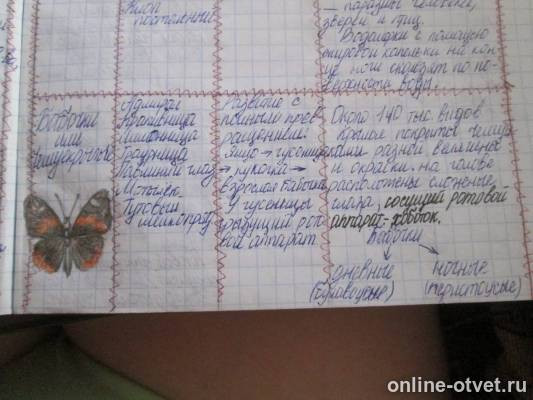 Клоп
постельный
— паразит человека,
зверей и птиц.
Водомерки с помощью
жировой капельки на кон-
це ноги скользят по по-
верхности воды.
Бабочки
или
Чешуекрылые
Адмирал
Крапивница
Лимонница
Траурница
Павлиний глаз
Тутовый
шелкопряд
Развитие с
полным прев-
ращением:
яйцо → гусеница
→ куколка →
взрослая бабочка
У гусеницы
грызущий рото-
вой аппарат.
Около 140 тыс. видов
крылья покрыты чешуй-
ками разной величины
и окраски. на голове
расположены сложные
глаза, сосущий ротовой
аппарат-хоботок.
Бабочки
дневные
(булавоусые)
ночные
(перистоусые)
online-otvet.ru